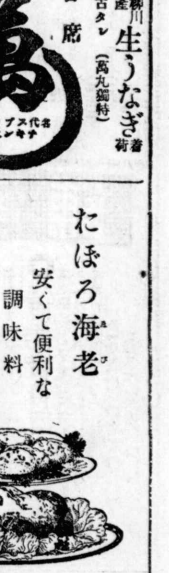 柳川産
生うなぎ
着荷
古タレ(萬丸獨特)
席
萬
名代スプ
チキン
たぼろ海老
えび
安くて便利な
調味料